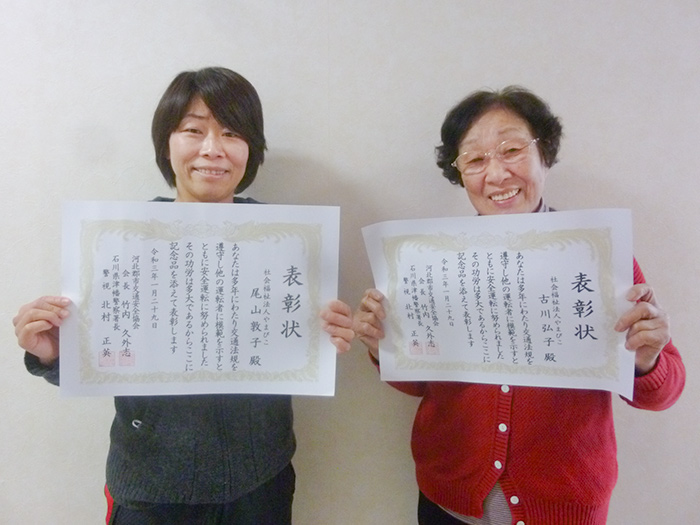 表彰状
社会福祉法人やまびこ
尾山敦子 殿
あなたは多年にわたり交通法規を
遵守し他の運転者に模範を示すと
ともに安全運転に努められました
その功労は多大であるからここに
記念品を添えて表彰します
令和三年一月二十九日
河北郡市交通安全協会
会長 竹内 久外志
石川県津幡警察署長
警視 北村 正英
表彰状
社会福祉法人やまびこ
古川弘子 殿
あなたは多年にわたり交通法規を
遵守し他の運転者に模範を示すと
ともに安全運転に努められました
その功労は多大であるからここに
記念品を添えて表彰します
令和三年一月二十九日
河北郡市交通安全協会
会長 竹内 久外志
石川県津幡警察署長
警視 北村 正英